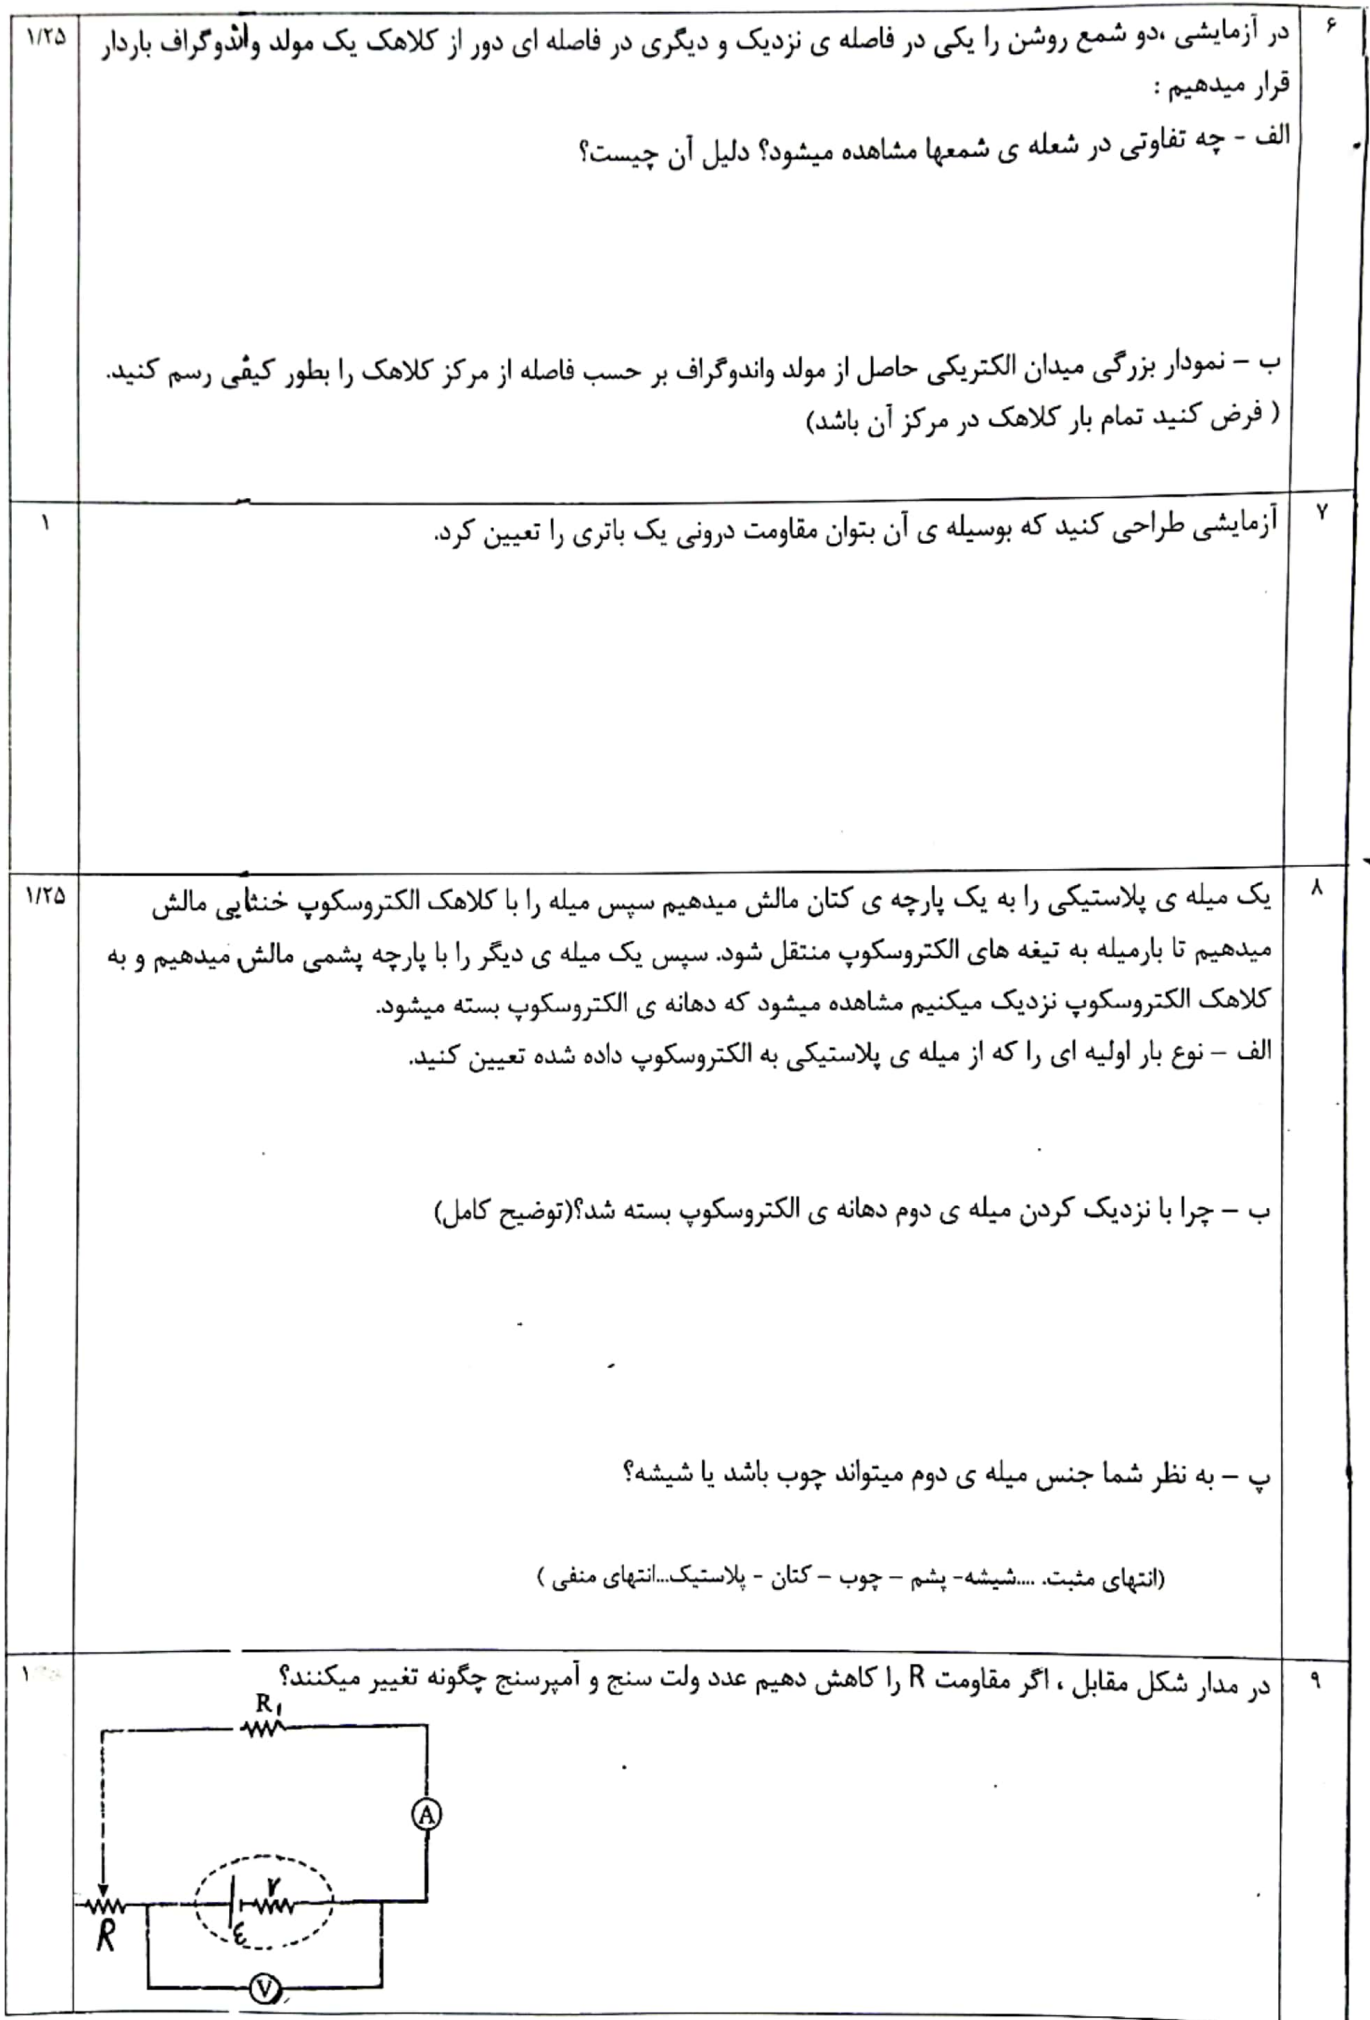 ۶
در آزمایشی ،دو شمع روشن را یکی در فاصله ی نزدیک و دیگری در فاصله ای دور از کلاهک یک مولد واندوگراف باردار
۱/۲۵
قرار میدهیم :
الف - چه تفاوتی در شعله ی شمعها مشاهده میشود؟ دلیل آن چیست؟
ب – نمودار بزرگی میدان الکتریکی حاصل از مولد واندوگراف بر حسب فاصله از مرکز کلاهک را بطور کیفی رسم کنید.
( فرض کنید تمام بار کلاهک در مرکز آن باشد)
۷
آزمایشی طراحی کنید که بوسیله ی آن بتوان مقاومت درونی یک باتری را تعیین کرد.
۱
۸
یک میله ی پلاستیکی را به یک پارچه ی کتان مالش میدهیم سپس میله را با کلاهک الکتروسکوپ خنثایی مالش
۱/۲۵
میدهیم تا بارمیله به تیغه های الکتروسکوپ منتقل شود. سپس یک میله ی دیگر را با پارچه پشمی مالش میدهیم و به
کلاهک الکتروسکوپ نزدیک میکنیم مشاهده میشود که دهانه ی الکتروسکوپ بسته میشود.
الف – نوع بار اولیه ای را که از میله ی پلاستیکی به الکتروسکوپ داده شده تعیین کنید.
ب – چرا با نزدیک کردن میله ی دوم دهانه ی الکتروسکوپ بسته شد؟(توضیح کامل)
پ – به نظر شما جنس میله ی دوم میتواند چوب باشد یا شیشه؟
(انتهای مثبت. ....شیشه- پشم – چوب – کتان - پلاستیک...انتهای منفی )
۹
در مدار شکل مقابل ، اگر مقاومت R را کاهش دهیم عدد ولت سنج و آمپرسنج چگونه تغییر میکنند؟
۱
R₁
A
r
ε
R
V